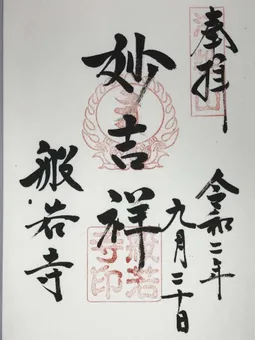 奉拝
令和二年
九月二十日
妙吉祥
般若寺
般若寺印